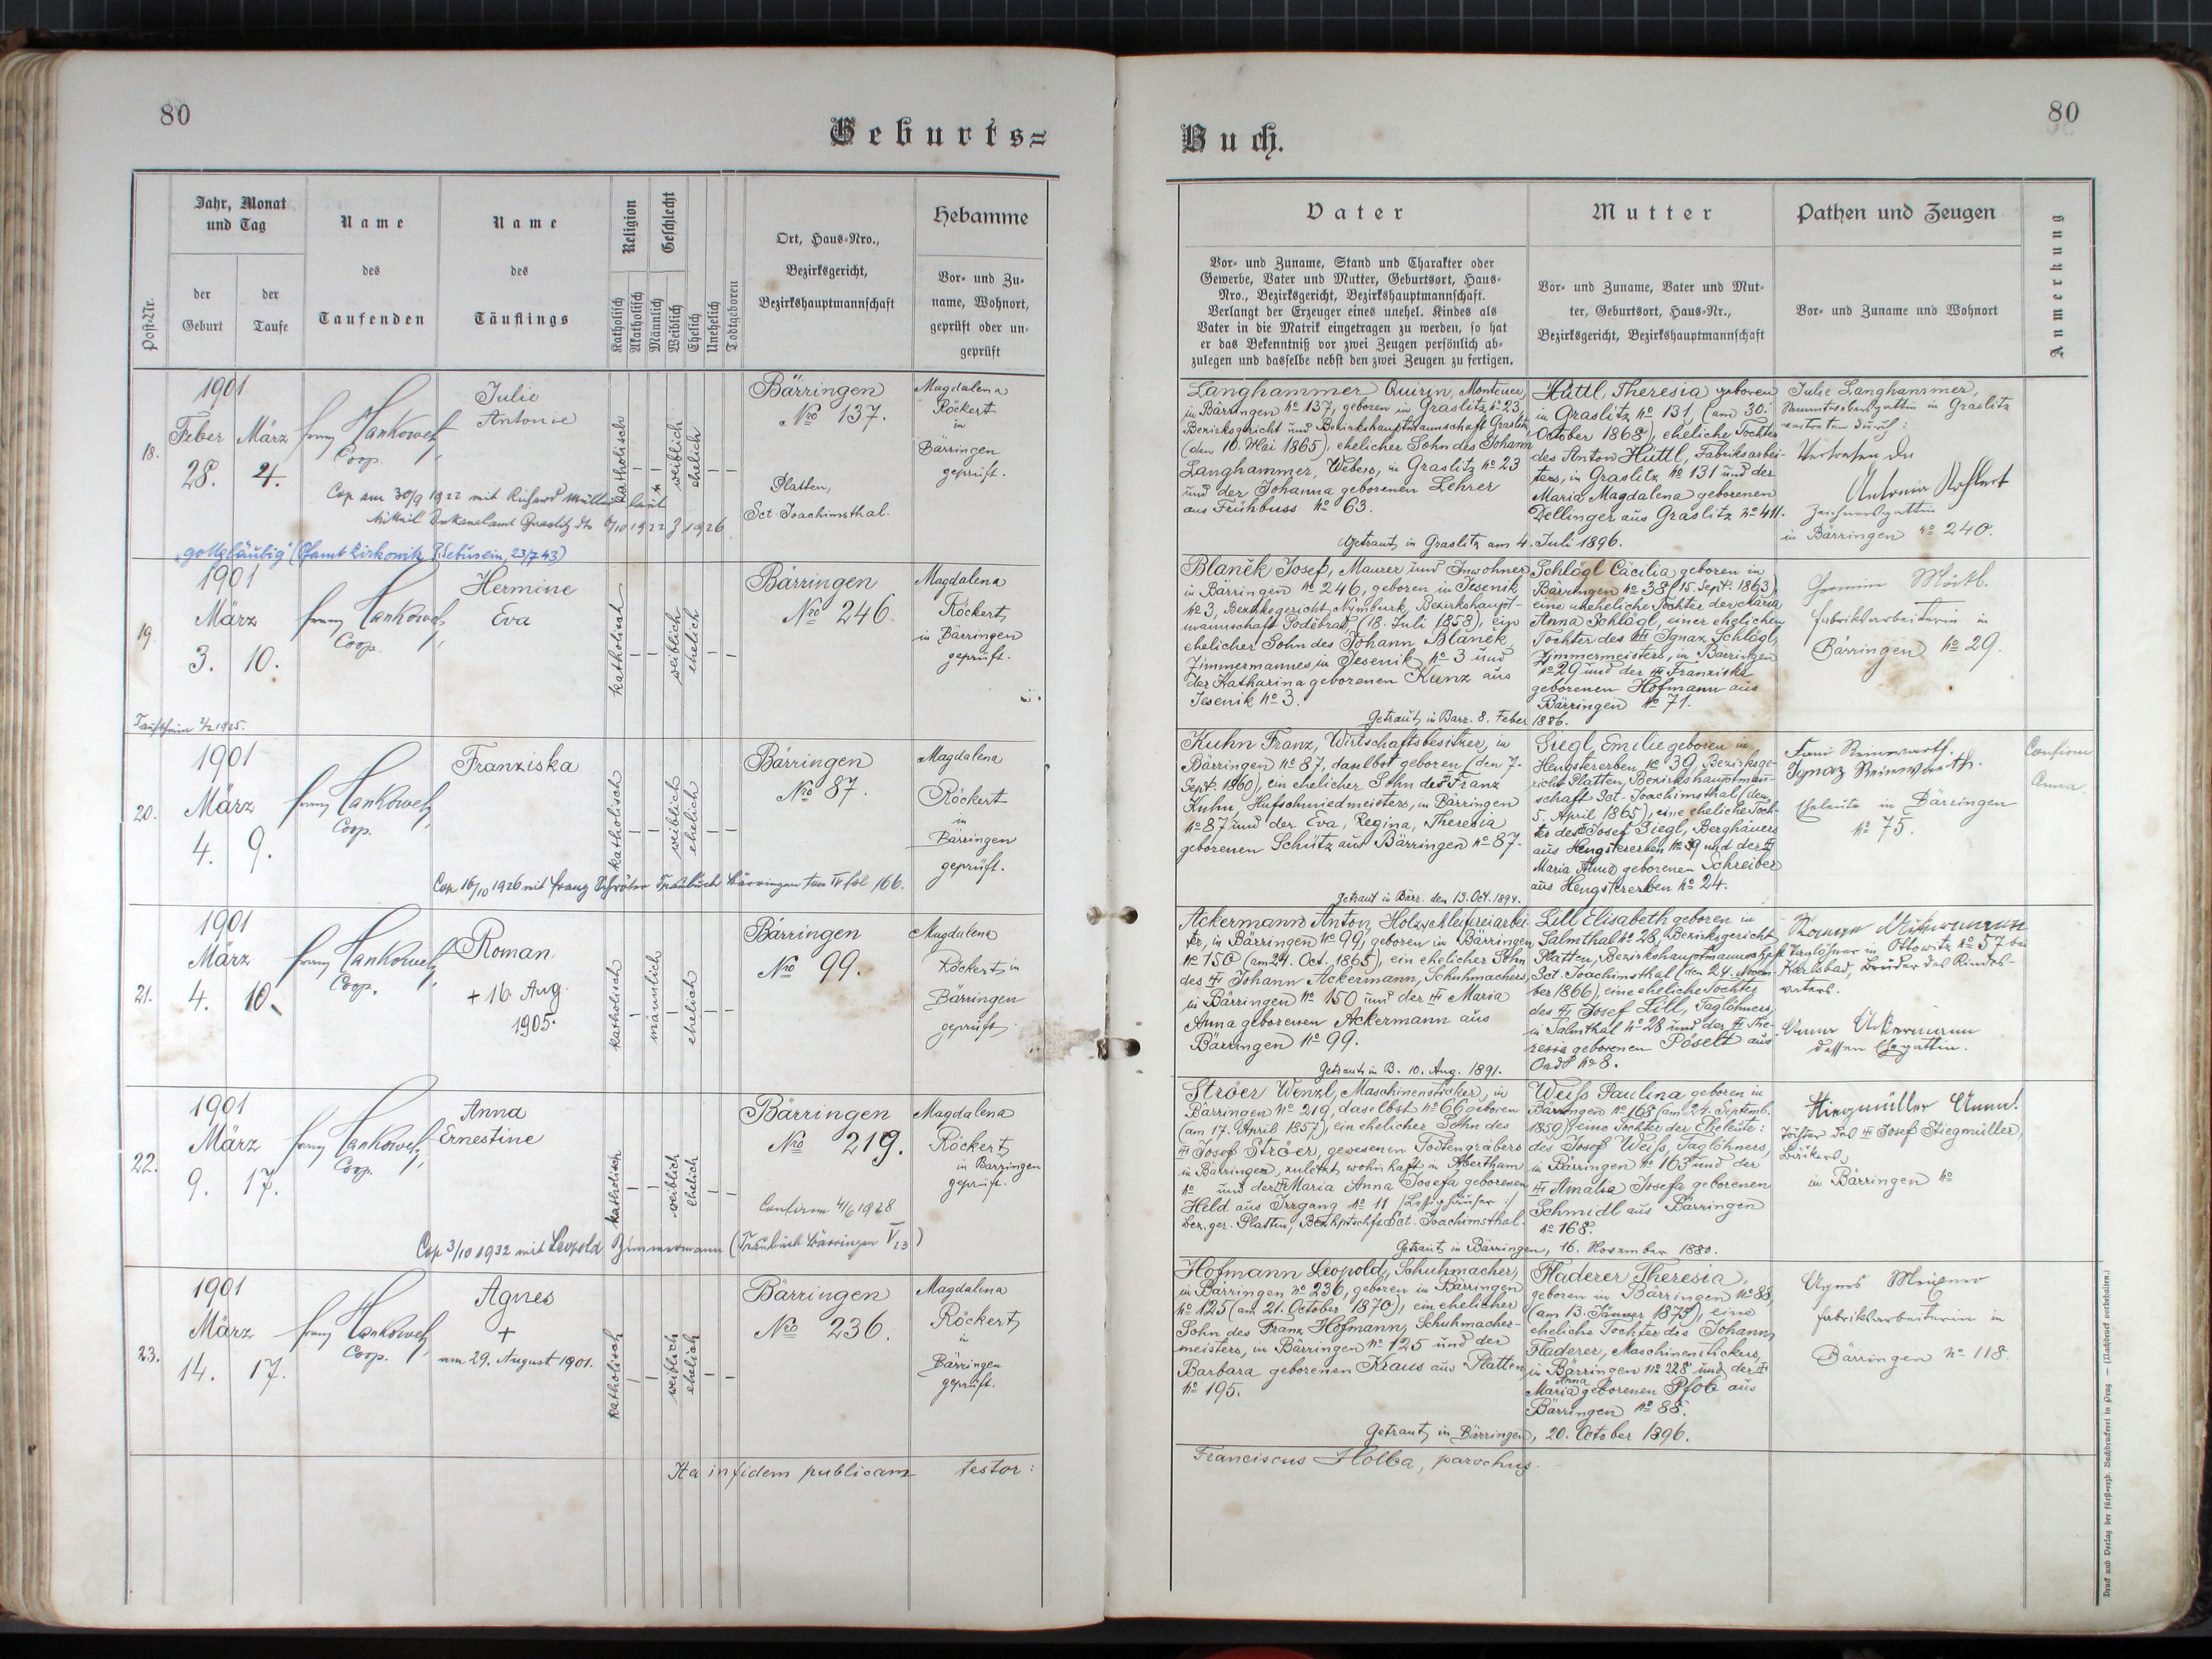 80
Geburts=
Jahr, Monat
und Tag
der
Geburt
der
Taufe
Post-Nr.
Name
des
Taufenden
Name
des
Täuflings
Religion
Geschlecht
Katholisch
Akatholisch
Männlich
Weiblich
Ehelich
Unehelich
Todtgeboren
Ort, Haus-Nro.,
Bezirksgericht,
Bezirkshauptmannschaft
Hebamme
Vor- und Zu-
name, Wohnort,
geprüft oder un-
geprüft
18.
1901
Feber März
28. 4.
Franz Hankowetz
Coop.
Julie
Antonie
katholisch
weiblich
ehelich
Bärringen
Nro 137.
Platten,
Sct. Joachimsthal.
Magdalena
Röckert
in
Bärringen
geprüft.
Cop am 30/9 1922 mit Richard Müller laut
Mitteil Dekanalamt Graslitz dto
"gottgläubig" (23/7 43)
19.
1901
März
3. 10.
Franz Hankowetz
Coop.
Hermine
Eva
katholisch
weiblich
ehelich
Bärringen
Nro 246.
Magdalena
Röckert,
in Bärringen
geprüft.
Taufschein 2/2 1925.
20.
1901
März
4. 9.
Franz Hankowetz
Coop.
Franziska
katholisch
weiblich
ehelich
Bärringen
Nro 87.
Magdalena
Röckert
in
Bärringen
geprüft.
Cop 16/10 1926 mit Franz Schröter Traubuch Bärringen tom IV fol 166.
21.
1901
März
4. 10.
Franz Hankowetz
Coop.
Roman
+ 16. Aug.
1905.
katholisch
männlich
ehelich
Bärringen
Nro 99.
Magdalena
Röckert, in
Bärringen
geprüft.
22.
1901
März
9. 17.
Franz Hankowetz
Coop.
Anna
Ernestine
katholisch
weiblich
ehelich
Bärringen
Nro 219.
Confirm 4/6 1928
Magdalena
Röckert,
in Bärringen
geprüft.
Cop 3/10 1932 mit Leopold Zimmermann (Traubuch Bärringen V 23)
23.
1901
März
14. 17.
Franz Hankowetz
Coop.
Agnes
+
am 29. August 1901.
katholisch
weiblich
ehelich
Bärringen
Nro 236.
Magdalena
Röckert,
in
Bärringen
geprüft.
Ita in fidem publicam testor:
80
Buch.
Vater
Vor- und Zuname, Stand und Charakter oder
Gewerbe, Vater und Mutter, Geburtsort, Haus-
Nro., Bezirksgericht, Bezirkshauptmannschaft.
Verlangt der Erzeuger eines unehel. Kindes als
Vater in die Matrik eingetragen zu werden, so hat
er das Bekenntniß vor zwei Zeugen persönlich ab-
zulegen und dasselbe nebst den zwei Zeugen zu fertigen.
Mutter
Vor- und Zuname, Vater und Mut-
ter, Geburtsort, Haus-Nr.,
Bezirksgericht, Bezirkshauptmannschaft
Pathen und Zeugen
Vor- und Zuname und Wohnort
Anmerkung
Langhammer Quirin, Monteur,
in Bärringen No 137, geboren in Graslitz No 23,
Bezirksgericht und Bezirkshauptmannschaft Graslitz,
(den 10. Mai 1865), ehelicher Sohn des Johann
Langhammer, Webers, in Graslitz No 23
und der Johanna geborenen Lehrer
aus Frühbuss No 63.
Hüttl, Theresia geboren
in Graslitz No 131, (am 30.
October 1868), eheliche Tochter
des Anton Hüttl, Fabriksarbei-
ters, in Graslitz No 131 und der
Maria Magdalena geborenen
Dellinger aus Graslitz No 411.
Julie Langhammer,
in Graslitz
vertreten durch:
Antonia Röckert
Zeichnersgattin
in Bärringen No 240.
Getraut, in Graslitz am 4. Juli 1896.
Blaněk Josef, Maurer und Inwohner
in Bärringen No 246, geboren in Jesenik
No 3, Bezirksgericht Nymburk, Bezirkshaupt-
mannschaft Poděbrad, (18. Juli 1858), ein
ehelicher Sohn des Johann Blaněk,
Zimmermannes in Jesenik No 3 und
der Katharina geborenen Kunz aus
Jesenik No 3.
Schlögl Cäcilia geboren in
Bärringen No 38 (15. Sept. 1863)
eine uneheliche Tochter der Maria
Anna Schlögl, einer ehelichen
Tochter des Ignaz Schlögl,
Zimmermeisters, in Bärringen
No 29 und der Franziska
geborenen Hofmann aus
Bärringen No 71.
Fabriksarbeiterin in
Bärringen No 29.
Getraut, in Bärr. 8. Feber 1886.
Kuhn Franz, Wirtschaftsbesitzer, in
Bärringen No 87, daselbst geboren (den 7.
Sept. 1860), ein ehelicher Sohn des Franz
Kuhn, Hufschmiedmeisters, in Bärringen
No 87 und der Eva, Regina, Theresia
geborenen Schütz aus Bärringen No 87.
Siegl, Emilie geboren in
Hengstererben No 39, Bezirksge-
richt Platten, Bezirkshauptman-
schaft Sct. Joachimsthal (den
5. April 1865), eine eheliche Toch-
ter des Josef Siegl, Berghäuers
aus Hengstererben No 39 und der
Maria Anna geborenen Schreiber
aus Hengstererben No 24.
Fani Reinwarth.
Ignaz Reinwarth.
Eheleute in Bärringen
No 75.
Confirm
Anna
Getraut in Bärr. den 13. Oct. 1894.
Ackermann Anton, Holzschleifereiarbei-
ter, in Bärringen No 99, geboren in Bärringen
No 150 (am 24. Oct. 1865), ein ehelicher Sohn
des Johann Ackermann, Schuhmachers,
in Bärringen No 150 und der Maria
Anna geborenen Ackermann aus
Bärringen No 99.
Lill Elisabeth geboren in
Salmthal No 28, Bezirksgericht
Platten, Bezirkshauptmannschaft
Sct. Joachimsthal (den 24. Novem-
ber 1866), eine eheliche Tochter
des Josef Lill, Taglöhners,
in Salmthal No 28 und der The-
resia geborenen Poselt aus
No 8.
Roman Ackermann
Taglöhner in Ottowitz No 57 bei
Karlsbad, Bruder des Kindes-
vaters.
Anna Ackermann
dessen Ehegattin.
Getraut, in B. 10. Aug. 1891.
Ströer Wenzl, Maschinensticker, in
Bärringen No 219, daselbst No 66 geboren
(am 17. April 1857), ein ehelicher Sohn des
Josef Ströer, gewesenen Todtengräbers
in Bärringen, zuletzt wohnhaft in Abertham
No und der Maria Anna Josefa geborenen
Held aus Irrgang No 11
Bez. ger. Platten, Bezhptschft Sct. Joachimsthal.
Weiß Paulina geboren in
Bärringen No 168 (am 24. Septemb.
1859) eine Tochter der Eheleute:
des Josef Weiß, Taglöhners,
in Bärringen No 163 und der
Amalia Josefa geborenen
Schmidl aus Bärringen
No 168.
Stiegmüller Anna.
Tochter des Josef Stiegmüller,
Bäckers,
in Bärringen No
Getraut in Bärringen, 16. November 1880.
Hofmann Leopold, Schuhmacher,
in Bärringen No 236, geboren in Bärringen
No 125 (am 21. October 1870), ein ehelicher
Sohn des Franz Hofmann, Schuhmacher-
meisters, in Bärringen No 125 und der
Barbara geborenen Kraus aus Platten
No 195.
Fladerer Theresia,
geboren in Bärringen No 88,
(am 13. Jänner 1875), eine
eheliche Tochter des Johann
Fladerer, Maschinenstickers,
in Bärringen No 228 und der
Maria Anna geborenen Pfob aus
Bärringen No 88.
Agnes Meixner
Fabriksarbeiterin in
Bärringen No 118.
Getraut, in Bärringen, 20. October 1896.
Franciscus Holba, parochus.
Druck und Verlag der fürsterzb. Buchdruckerei in Prag. — (Nachdruck vorbehalten.)